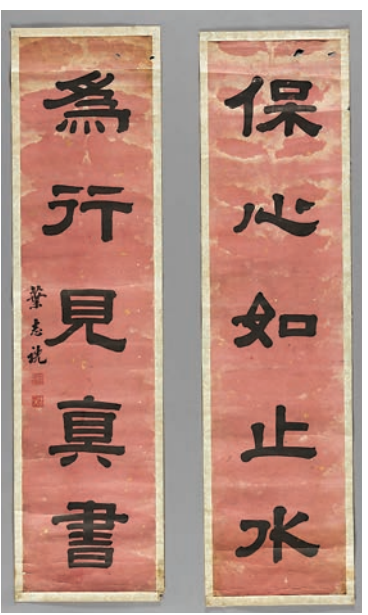 保心如止水
為行見真書
葉志詵